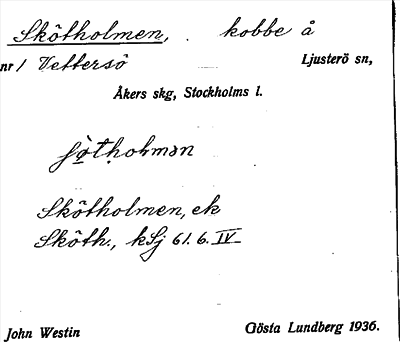 Skötholmen, kobbe å
nr 1 Vettersö Ljusterö sn,
Åkers skg, Stockholms l.
Skötholmen, ek
Sköth., kSj 61.6.IV
John Westin Gösta Lundberg 1936.